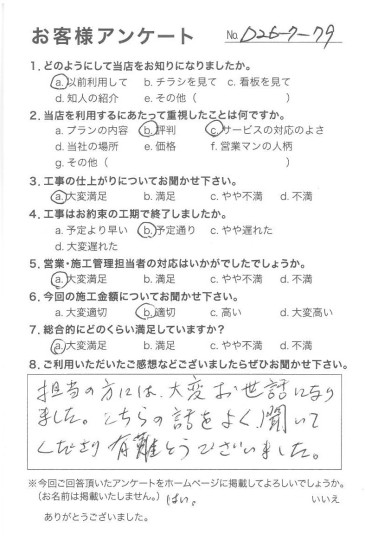 お客様アンケート No. D26-7-79
1. どのようにして当店をお知りになりましたか。
a. 以前利用して b. チラシを見て c. 看板を見て
d. 知人の紹介 e. その他（ ）
2. 当店を利用するにあたって重視したことは何ですか。
a. プランの内容 b. 評判 c. サービスの対応のよさ
d. 当社の場所 e. 価格 f. 営業マンの人柄
g. その他（ ）
3. 工事の仕上がりについてお聞かせ下さい。
a. 大変満足 b. 満足 c. やや不満 d. 不満
4. 工事はお約束の工期で終了しましたか。
a. 予定より早い b. 予定通り c. やや遅れた
d. 大変遅れた
5. 営業・施工管理担当者の対応はいかがでしたでしょうか。
a. 大変満足 b. 満足 c. やや不満 d. 不満
6. 今回の施工金額についてお聞かせ下さい。
a. 大変適切 b. 適切 c. 高い d. 大変高い
7. 総合的にどのくらい満足していますか？
a. 大変満足 b. 満足 c. やや不満 d. 不満
8. ご利用いただいたご感想などございましたらぜひお聞かせ下さい。
担当の方には、大変お世話になり
ました。こちらの話をよく聞いて
くださり有難とうございました。
※今回ご回答頂いたアンケートをホームページに掲載してよろしいでしょうか。
（お名前は掲載いたしません。） はい。 いいえ
ありがとうございました。